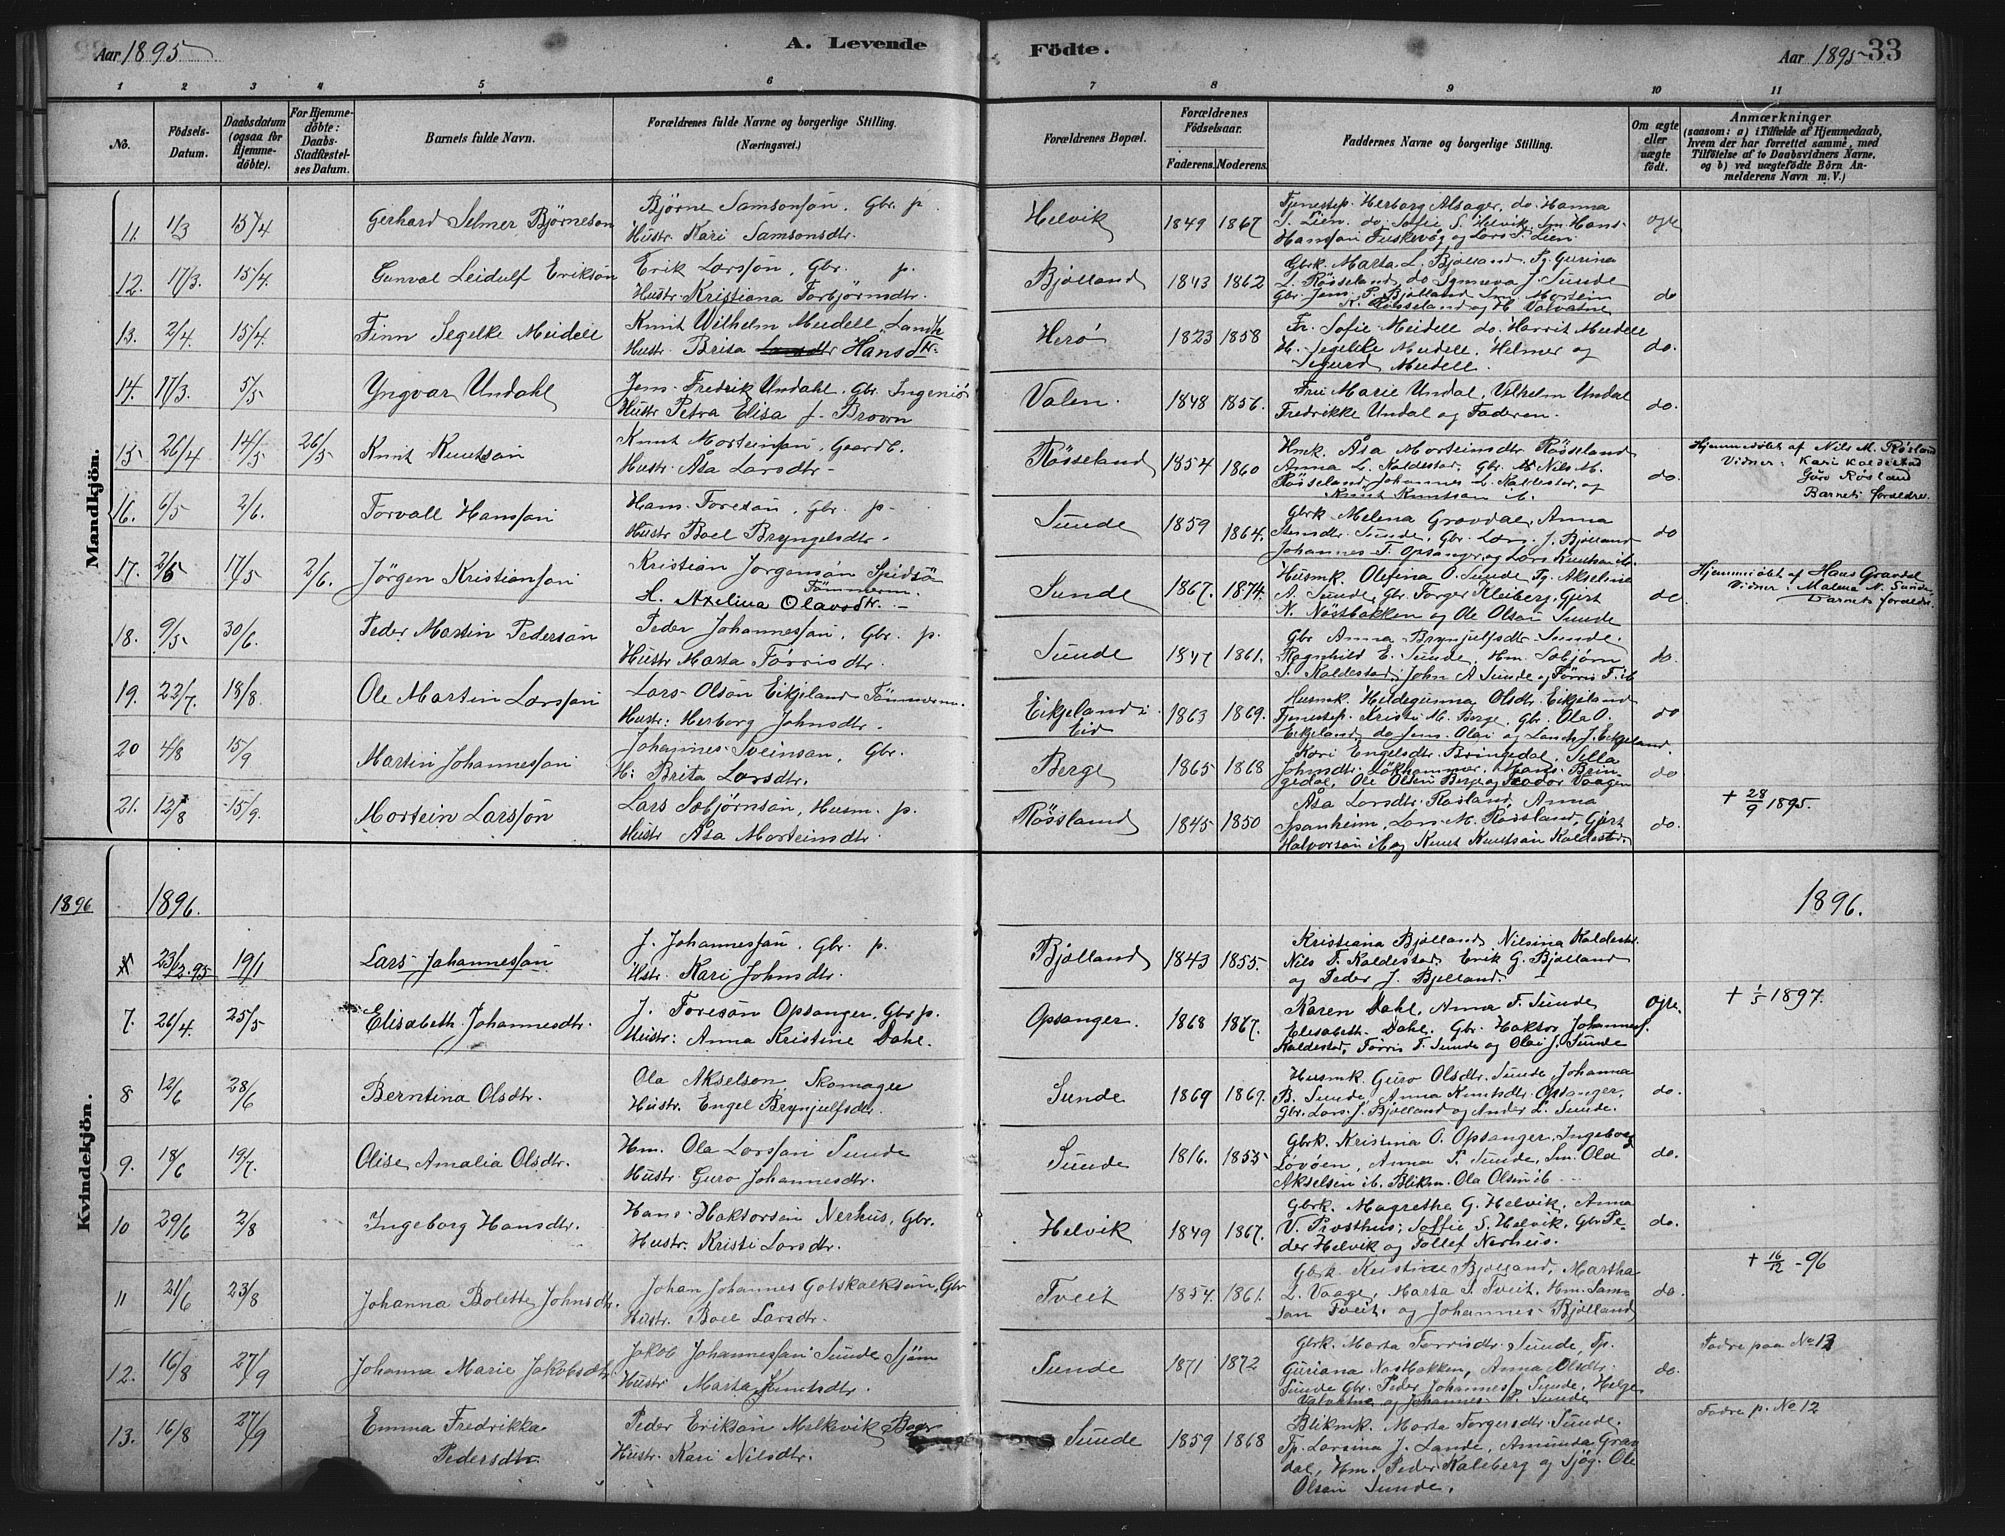 Aar 1895
A. Levende
Födte.
Aar 1895
33
1 2 3 4 5 6 7 8 9 10 11
No.
Födsels-Datum.
Daabsdatum (ogsaa for Hjemme-döbte).
For Hjemme-döbte: Daabs-Stadfæstel-ses Datum.
Barnets fulde Navn.
Forældrenes fulde Navne og borgerlige Stilling. (Næringsvei.)
Forældrenes Bopæl.
Forældrenes Födselsaar.
Faderens. Moderens.
Faddernes Navne og borgerlige Stilling.
Om ægte eller uægte födt.
Anmærkninger
(saasom: a) i Tilfælde af Hjemmedaab, hvem der har forrettet samme, med Tilföielse af to Daabsvidners Navne, og b) ved uægtefödte Börn An-melderens Navn m. V.)
Mandkjön.
11. 1/3 15/4 Gerhard Selmer Bjørneson
Bjørne Samsonson, Gbr. p.
Hustr. Kari Samsonsdtr.
Helvik 1849 1867
Tjenestep. Herborg Alsager, do. Hanna
S. Lien, do. Sofie S. Helvik, Sm. Hans
Hansson Fuskevåg og Lars S. Lien
12. 17/3. 15/4. Gunval Leidulf Eriksøn
Erik Larssøn, Gbr. p.
Hustr. Kristiana Torbjørnsdtr.
Bjølland 1843 1862
Gbrk. Marta L. Bjølland, Pg. Gurina
L. Røsseland, do Synneva J. Sunde
Gbr. Jens P. Bjølland Sm. Mortein
N. Røsseland og H. Valvatne
do
13. 2/4. 15/4. Finn Segelke Meidell
Knut Wilhelm Meidell, Landh.
Hustr. Brita Hansdtr.
Herø 1823 1858
Fr. Sofie Meidell do. Harrit Meidell
H. Segelke Meidell, Helmer og
Sigurd Meidell.
do.
14. 17/3. 5/5 Yngvar Undahl
Jens Fredrik Undahl, Gbr. Ingeniø
Hustr Petra Elisa J. Brown
Valen. 1848 1856.
Frú Marie Undal, Vilhelm Undal
Fredrikke Undal og Faderen.
do.
15 26/4 14/5 26/5 Knut Knutsøn
Knut Morteinsøn, Gaardb.
Hustr. Åsa Larsdtr.
Røsseland 1854 1860
Hmk. Åsa Morteinsdtr Røsseland
Anna L. Kaldestad, Gbr. Nils M.
Røsseland, Johannes L. Kaldestad, og
Knut Knutsøn ib.
do.
Hjemmedøbt af Nils M. Røsland
Vidner: Kari Kaldestad
Guro Røsland
Barnets foreldre.
16. 6/5 2/6. Torvall Hansson
Hans Toresøn, Gbr. p.
Hustr Boel Bryngelsdtr.
Sunde 1859 1864.
Gbrk. Melena Gravdal, Anna
Steinsdtr. Sunde, Gbr. Lars J. Bjølland
Johannes T. Opsanger, og Lars Knutsøn ib.
do
17. 2/5 17/5 2/6. Jörgen Kristianson
Kristian Jorgensøn Spidsø
Tømmerm.
H. Axelina Olavsdtr.
Sunde 1867. 1874.
Husmk. Olefina O. Sunde Pg. Akseline
A. Sunde, Gbr. Torger Kleiberg, Gjert
N. Nöstbakken og Ole Olson Sunde
do
Hjemmedøbt af Hans Gravdal
Vidner: Malena N. Sunde
Barnets foreldre.
18. 9/5 30/6. Peder Martin Pedersøn
Peder Johannesson, Gbr. p.
Hustr Marta Tørrisdtr.
Sunde 1847 1861.
Gbr Anna Brynjulfsdtr Sunde.
Ragnhild E. Sunde, Hm. Sæbjørn
S. Kaldestad, John A Sunde og Tørris T. ib
do.
19. 22/7. 18/8 Ole Martin Larsson
Lars Olsøn Eikjeland Tömmerm.
Hustr: Herborg Johnsdtr.
Eikjeland i
Eid
1863 1869.
Husmk. Hildegunna Olsdtr. Eikjeland
Tjenestep. Kristi M. Berge, Gbr. Ola O.
Eikjeland, do Jens Olai og Lars J. Eikjeland.
do
20 4/8 15/9 Martin Johannesson
Johannes Sveinsøn, Gbr.
H: Brita Larsdtr.
Berge 1865 1868
Kari Engelsdtr. Bringedal, Sella
Johnsdtr. Løkhammer, Hans Brin-
gedal, Ole Olsen Berge og Teodor Vaagen
do
21. 12/8 15/9. Mortein Larsson
Lars Sæbjørnsøn, Husm. p.
Hustr Åsa Morteinsdtr
Røssland 1845 1850
Åsa Larsdtr Røsland, Anna
Spanheim, Lars M. Røssland, Gjert
Halvorsøn ib og Knut Knutsøn Kaldestad
do.
+ 28/9 1895.
1896 1896. 1896.
23/12.95 19/1 Lars Johannesson
J. Johannesson, Gbr. p.
Hstr. Kari Johnsdtr.
Bjølland 1843 1855.
Kristiana Bjølland Nilsina Kaldestad.
Nils T. Kaldestad Erik G. Bjølland
og Peder J. Bjelland.
Kvindekjön.
7. 26/4. 25/5 Elisabeth Johannesdtr.
J. Toresøn Opsanger, Gbr p.
Hustr: Anna Kristine Dahl.
Opsanger. 1868 1867.
Karen Dahl, Anna T. Sunde
Elisabeth Dahl. Gbr. Haktor Johannesj.
Kaldestad, Tørris T. Sunde og Olai J. Sunde
+ 1/5 1897.
8 12/6 28/6 Berntina Olsdtr.
Ola Akselson, Skomager
Hustr. Engel Brynjulfsdtr.
Sunde 1869 1869.
Husmk. Guro Olsdtr. Sunde Johanna
B. Sunde Anna Knutsdtr. Opsanger,
Gbr. Lars J. Bjølland og Ander L. Sunde.
do.
9. 18/6 19/7. Olise Amalia Olsdtr.
Hm. Ola Larsson Sunde
Hustr. Guro Johannesdtr.
Sunde 1816. 1855
Gbrk. Kristina O. Opsanger, Ingeborg
Løvøen, Anna T. Sunde, Sm. Ola
Akselsen ib. Blikm. Ola Olsen ib
do.
10 29/6 2/8 Ingeborg Hansdtr.
Hans Haktorsen Nerhus, Gbr.
Hustr. Kristi Larsdtr.
Helvik 1849 1867.
Gbrk. Magrethe G. Helvik, Anna
V. Prosthus, Soffie S. Helvik, Gbr Pe-
der Helvik og Tollef Nerhus.
do.
11 21/6 23/8 Johanna Bolette Johnsdtr.
Johan Johannes Gotskalksøn, Gbr
Hustr. Boel Larsdtr.
Tveit 1854. 1861.
Gbrk Kristine Bjølland, Martha
L. Vaage, Marta S. Tveit, Hm. Sam-
son Tveit, og Johannes Bjølland
do.
+ 16/12 -96
12. 16/8 27/9 Johanna Marie Jakobsdtr.
Jakob Johannesson Sunde Sjøm
Hustr Marta Knutsdtr.
Sunde 1871 1872
Gbrk. Marta Torrisdtr Sunde, Pp.
Guriana Nostbakken, Anna Olsdtr.
Sunde Gbr. Peder Johannesj. Sunde, Helge
Valvatne og Johannes P. Sunde
do.
Fadre paa No 13
13. 16/8 27/9 Emma Fredrikka
Pedersdtr
Peder Eriksøn Melkevik Bager
Hustr. Kari Nilsdtr.
Sunde 1859 1868
Blikmk. Marta Torgersdtr Sunde.
Pp. Larsina J. Lande, Amunda Grav
dal, Hm. Peder Kaleberg og Sjøg. Ole
Olsøn Sunde.
Fadre p. No 12